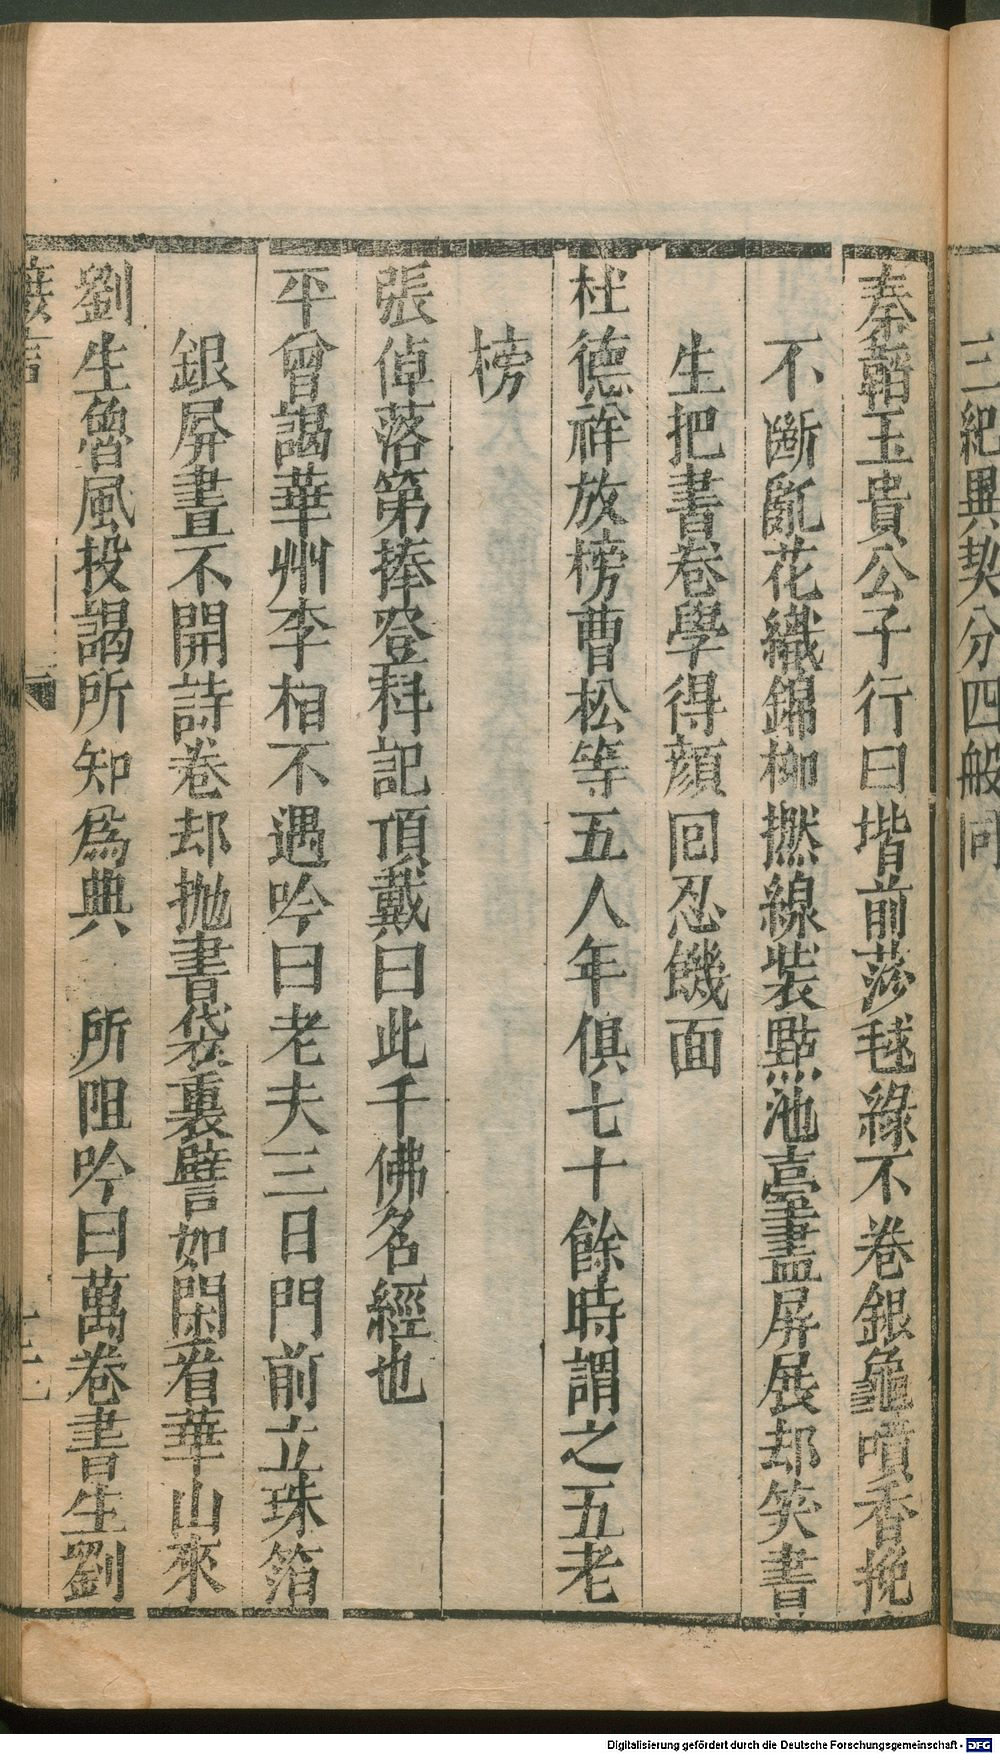 三紀異契分四般同
秦韜玉貴公子行曰堦前莎毬綠不卷銀龜噴香挽
不斷亂花織錦柳撚線裝點池臺畫屏展却笑書
生把書卷學得顔回忍饑面
杜德祥放榜曹松等五人年俱七十餘時謂之五老
榜
張倬落第捧登科記頂戴曰此千佛名經也
平曾謁華州李相不遇吟曰老夫三日門前立珠箔
銀屛晝不開詩卷却抛書袋裏譬如閑看華山來
劉生魯風投謁所知爲典 所阻吟曰萬卷書生劉
摭言
Digitalisierung gefördert durch die Deutsche Forschungsgemeinschaft - DFG